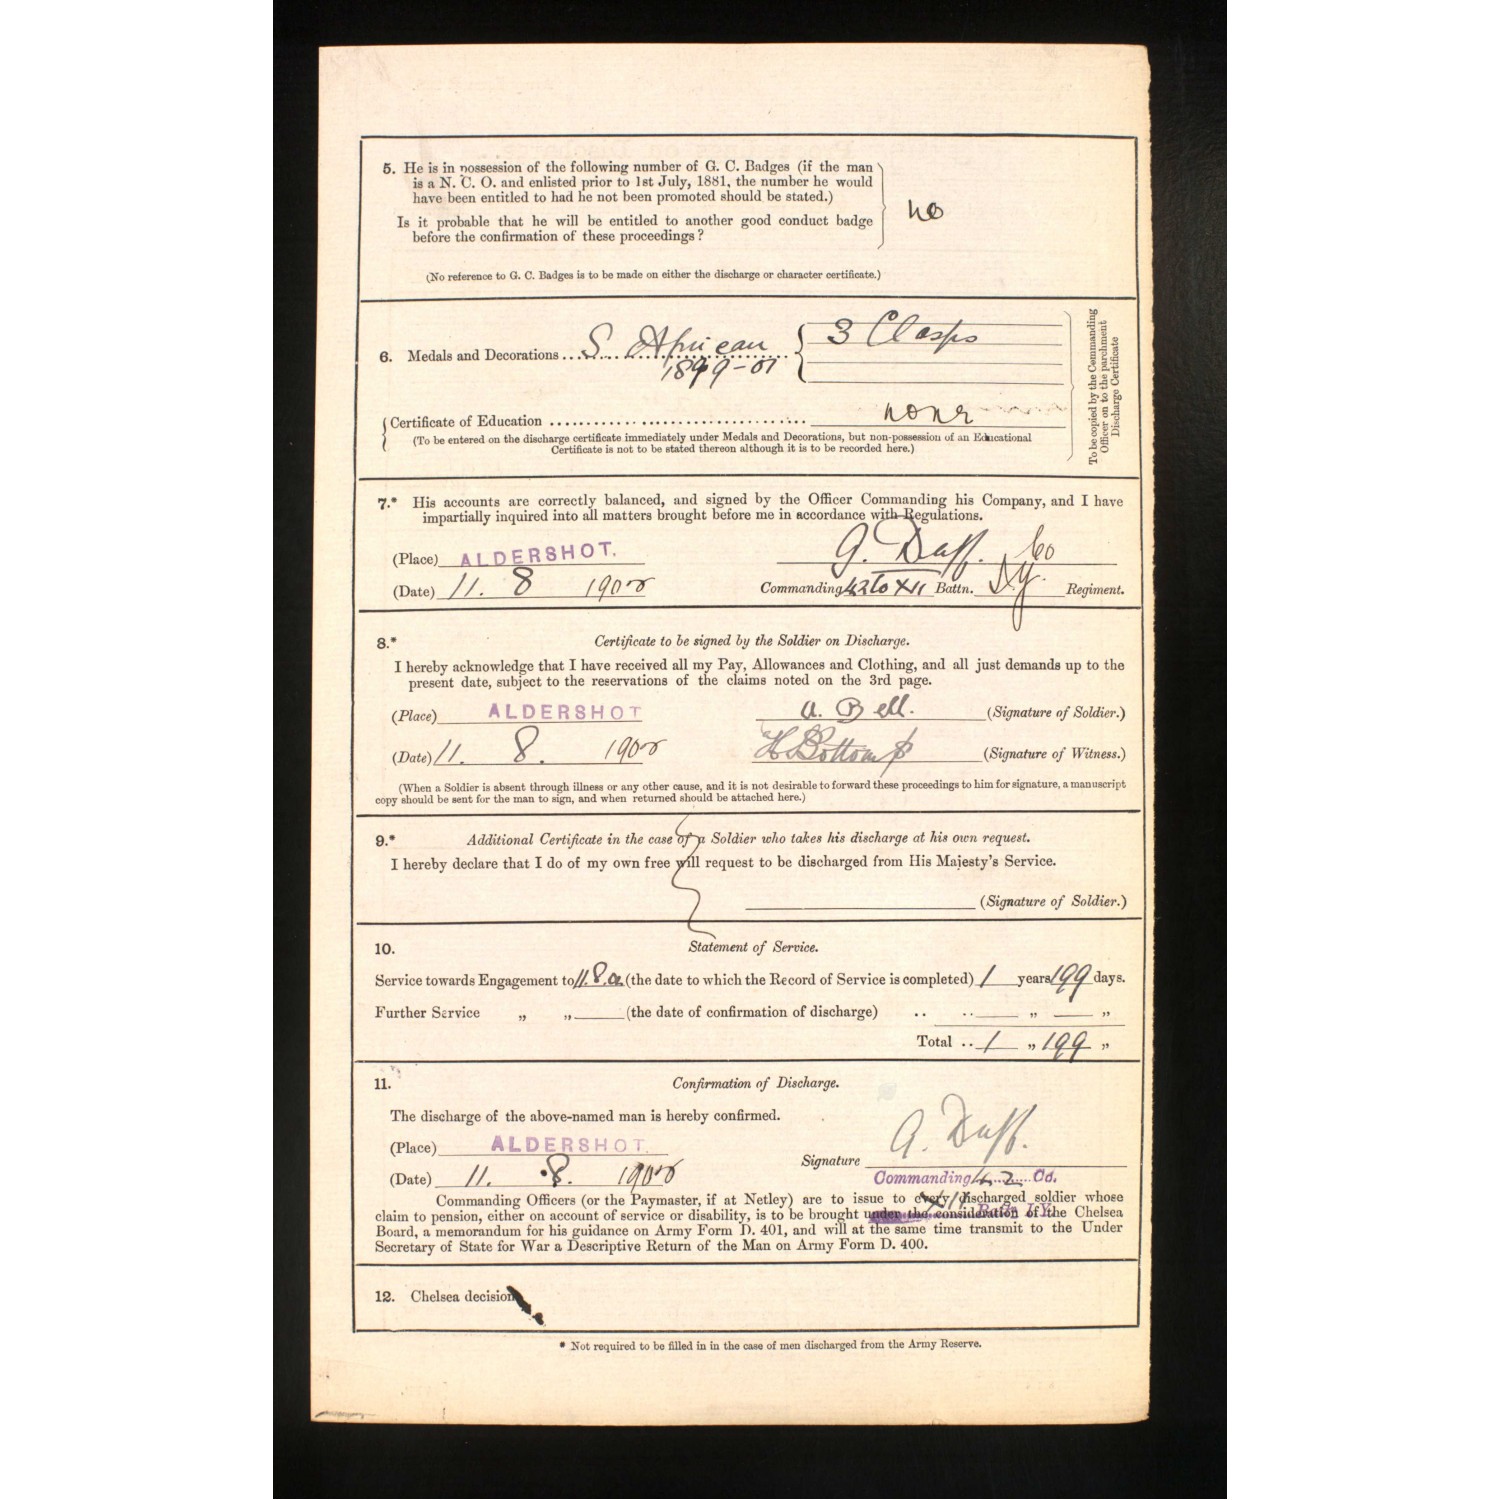 5. He is in possession of the following number of G. C. Badges (if the man
is a N. C. O. and enlisted prior to 1st July, 1881, the number he would
have been entitled to had he not been promoted should be stated.)
no
Is it probable that he will be entitled to another good conduct badge
before the confirmation of these proceedings?
(No reference to G. C. Badges is to be made on either the discharge or character certificate.)
6. Medals and Decorations... S. African 3 Clasps
1899-01
Certificate of Education .................................... none
(To be entered on the discharge certificate immediately under Medals and Decorations, but non-possession of an Educational
Certificate is not to be stated thereon although it is to be recorded here.)
To be copied by the Commanding
Officer on to the parchment
Discharge Certificate
7.* His accounts are correctly balanced, and signed by the Officer Commanding his Company, and I have
impartially inquired into all matters brought before me in accordance with Regulations.
(Place) ALDERSHOT. Co
(Date) 11. 8 190 Commanding 42 Co XII Battn. I.Y. Regiment.
8.* Certificate to be signed by the Soldier on Discharge.
I hereby acknowledge that I have received all my Pay, Allowances and Clothing, and all just demands up to the
present date, subject to the reservations of the claims noted on the 3rd page.
(Place) ALDERSHOT A. Bell. (Signature of Soldier.)
(Date) 11. 8. 190 (Signature of Witness.)
(When a Soldier is absent through illness or any other cause, and it is not desirable to forward these proceedings to him for signature, a manuscript
copy should be sent for the man to sign, and when returned should be attached here.)
9.* Additional Certificate in the case of a Soldier who takes his discharge at his own request.
I hereby declare that I do of my own free will request to be discharged from His Majesty's Service.
(Signature of Soldier.)
10. Statement of Service.
Service towards Engagement to 11.8. (the date to which the Record of Service is completed) 1 years 199 days.
Further Service „ „ (the date of confirmation of discharge) .. .. „ „
Total .. 1 „ 199 „
11. Confirmation of Discharge.
The discharge of the above-named man is hereby confirmed.
(Place) ALDERSHOT. Signature
(Date) 11. 8. 190 Commanding 42 Co.
XII Batt. I.Y.
Commanding Officers (or the Paymaster, if at Netley) are to issue to every discharged soldier whose
claim to pension, either on account of service or disability, is to be brought under the consideration of the Chelsea
Board, a memorandum for his guidance on Army Form D. 401, and will at the same time transmit to the Under
Secretary of State for War a Descriptive Return of the Man on Army Form D. 400.
12. Chelsea decision
* Not required to be filled in in the case of men discharged from the Army Reserve.